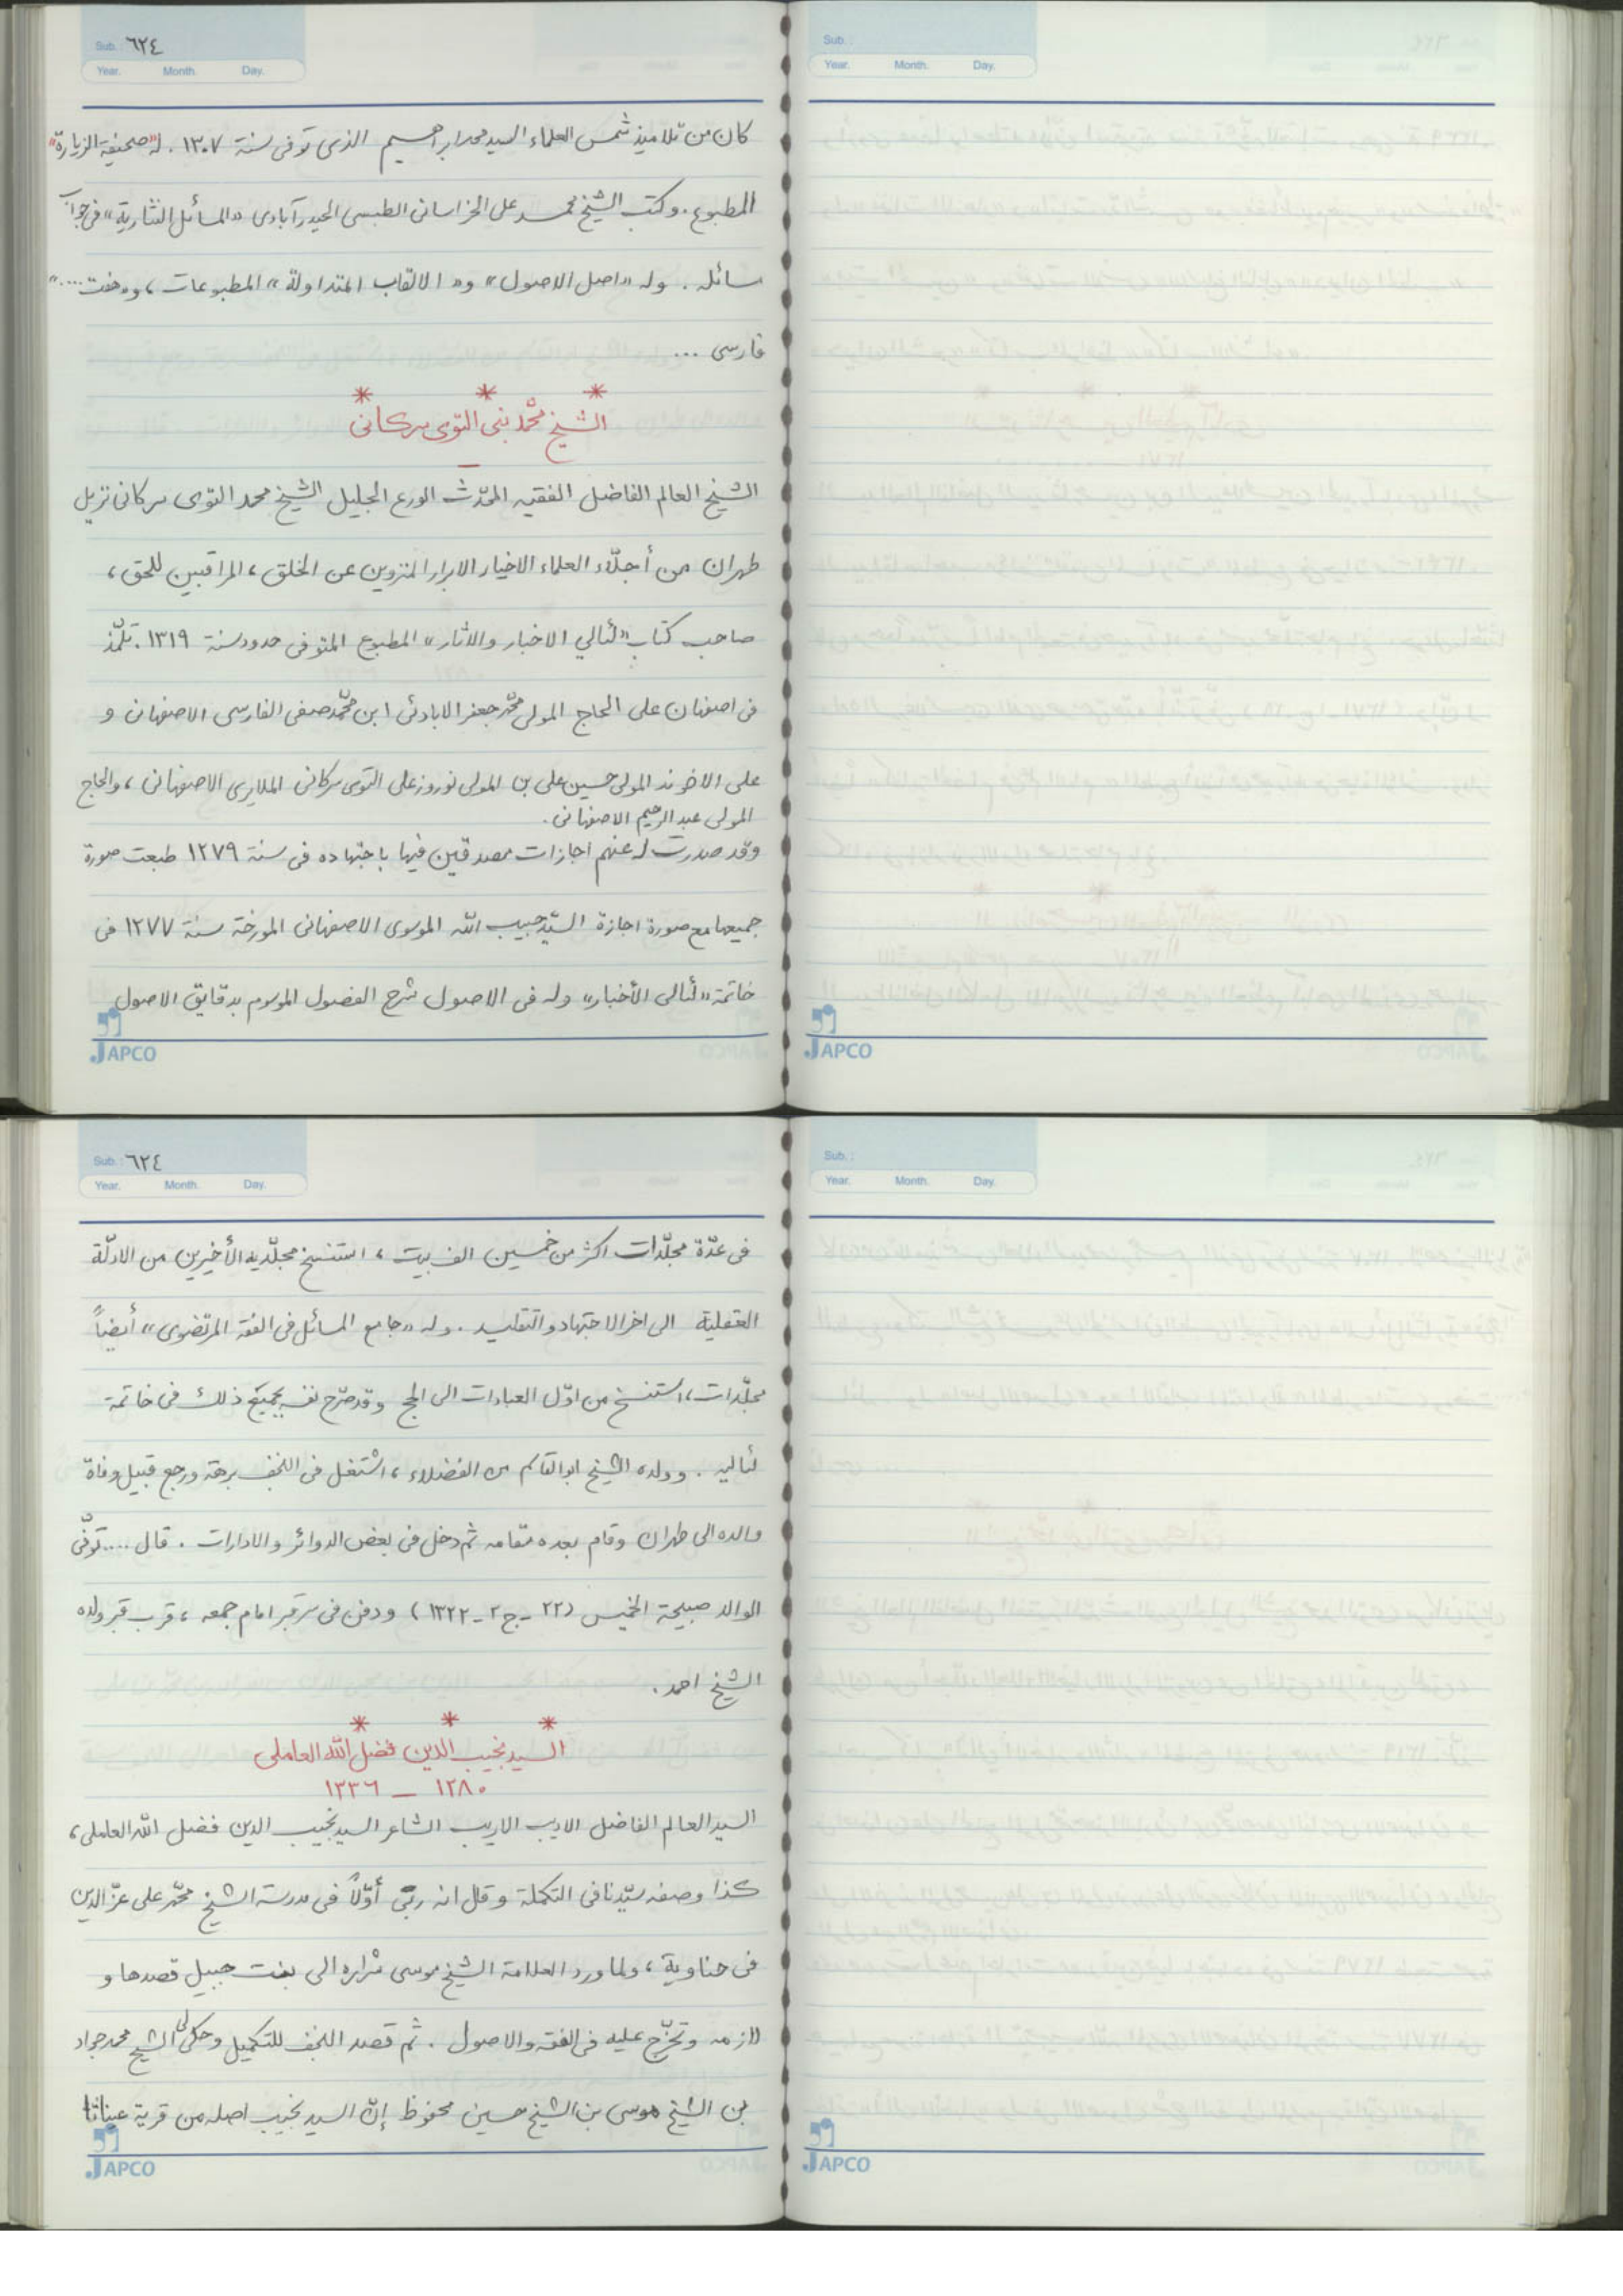 Sub. : ٦٢٤
Year. Month. Day.
كان من تلاميذ شمس العلماء السيد محمد ابراهيم الذى توفى سنة ١٣٠٧ . له "صحيفة الزيارة"
المطبوع . وكتب الشيخ محمد على الخراسانى الطبسى الحيدرآبادى «المسائل النثارية» فى جواب
سائله . وله «اصل الاصول» و« الالقاب المتداولة » المطبوعات ، و«هفت ....»
فارسى ...
* * *
الشيخ محمّد نبى التوى سركانى
ــ
الشيخ العالم الفاضل الفقيه المحدّث الورع الجليل الشيخ محمد التوى سركانى نزيل
طهران من أجلّاء العلماء الاخيار الابرار المنزوين عن الخلق ، المراقبين للحق ،
صاحب كتاب «لئالي الاخبار والاثار» المطبوع المتوفى حدود سنة ١٣١٩ . تلمّذ
فى اصفهان على الحاج المولى محمّد جعفر الابادئى ابن محمّد صفى الفارسى الاصفهانى و
على الاخوند المولى حسين على بن المولى نوروز على التوى سركانى الملايرى الاصفهانى ، والحاج
المولى عبد الرحيم الاصفهانى .
وقد صدرت له عنهم اجازات مصدقين فيها باجتهاده فى سنة ١٢٧٩ طبعت صورة
جميعها مع صورة اجازة السيّد حبيب الله الموسوى الاصفهانى المورخة سنة ١٢٧٧ فى
خاتمة «لئالى الأخبار» وله فى الاصول شرح الفصول الموسوم بدقايق الاصول
JAPCO
Sub. :
Year. Month. Day.
JAPCO
Sub. : ٦٢٤
Year. Month. Day.
فى عدّة مجلّدات اكثر من خمسين الف بيت ، استنسخ مجلّديه الأخيرين من الادلّة
العقلية الى اخر الاجتهاد والتقليد . وله «جامع المسائل فى الفقه المرتضوى» أيضاً
مجلّدات ، استنسخ من اوّل العبادات الى الحج وقد صرّح نفسه بجميع ذلك فى خاتمة
لئاليه . وولده الشيخ ابوالقاسم من الفضلاء ، اشتغل فى النجف برهة ورجع قبيل وفاة
والده الى طهران وقام بعده مقامه ثم دخل فى بعض الدوائر والادارات . قال .... توفّى
الوالد صبيحة الخميس (٢٢ - ج٢ - ١٣٢٢) ودفن فى سر قبر امام جمعه ، قرب قبر ولده
الشيخ احمد .
* * *
السيد نجيب الدين فضل الله العاملى
١٢٨٠ – ١٣٣٦
السيد العالم الفاضل الاديب الاريب الشاعر السيد نجيب الدين فضل الله العاملى ،
كذا وصفه سيّدنا فى التكملة وقال انه ربّى أوّلاً فى مدرسة الشيخ محمّد على عزّ الدين
فى حناوية ، ولما ورد العلامة الشيخ موسى شراره الى بنت جبيل قصدها و
لازمه وتخرّج عليه فى الفقه والاصول . ثم قصد النجف للتكميل وحكى لى الشيخ محمد جواد
بن الشيخ موسى بن الشيخ حسين محفوظ إنّ السيد نجيب اصله من قرية عيناثا
JAPCO
Sub. :
Year. Month. Day.
JAPCO